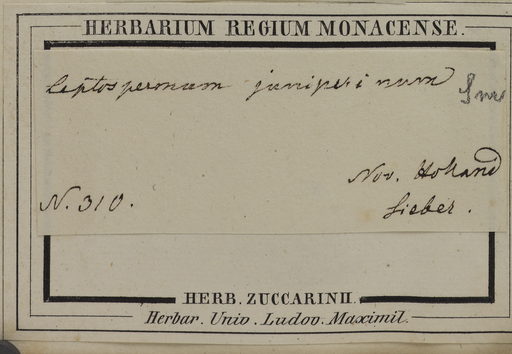 HERBARIUM REGIUM MONACENSE.
Leptospermum juniperinum Sm
Nov. Holland
N. 310.
Sieber.
HERB. ZUCCARINII.
Herbar. Univ. Ludov. Maximil.